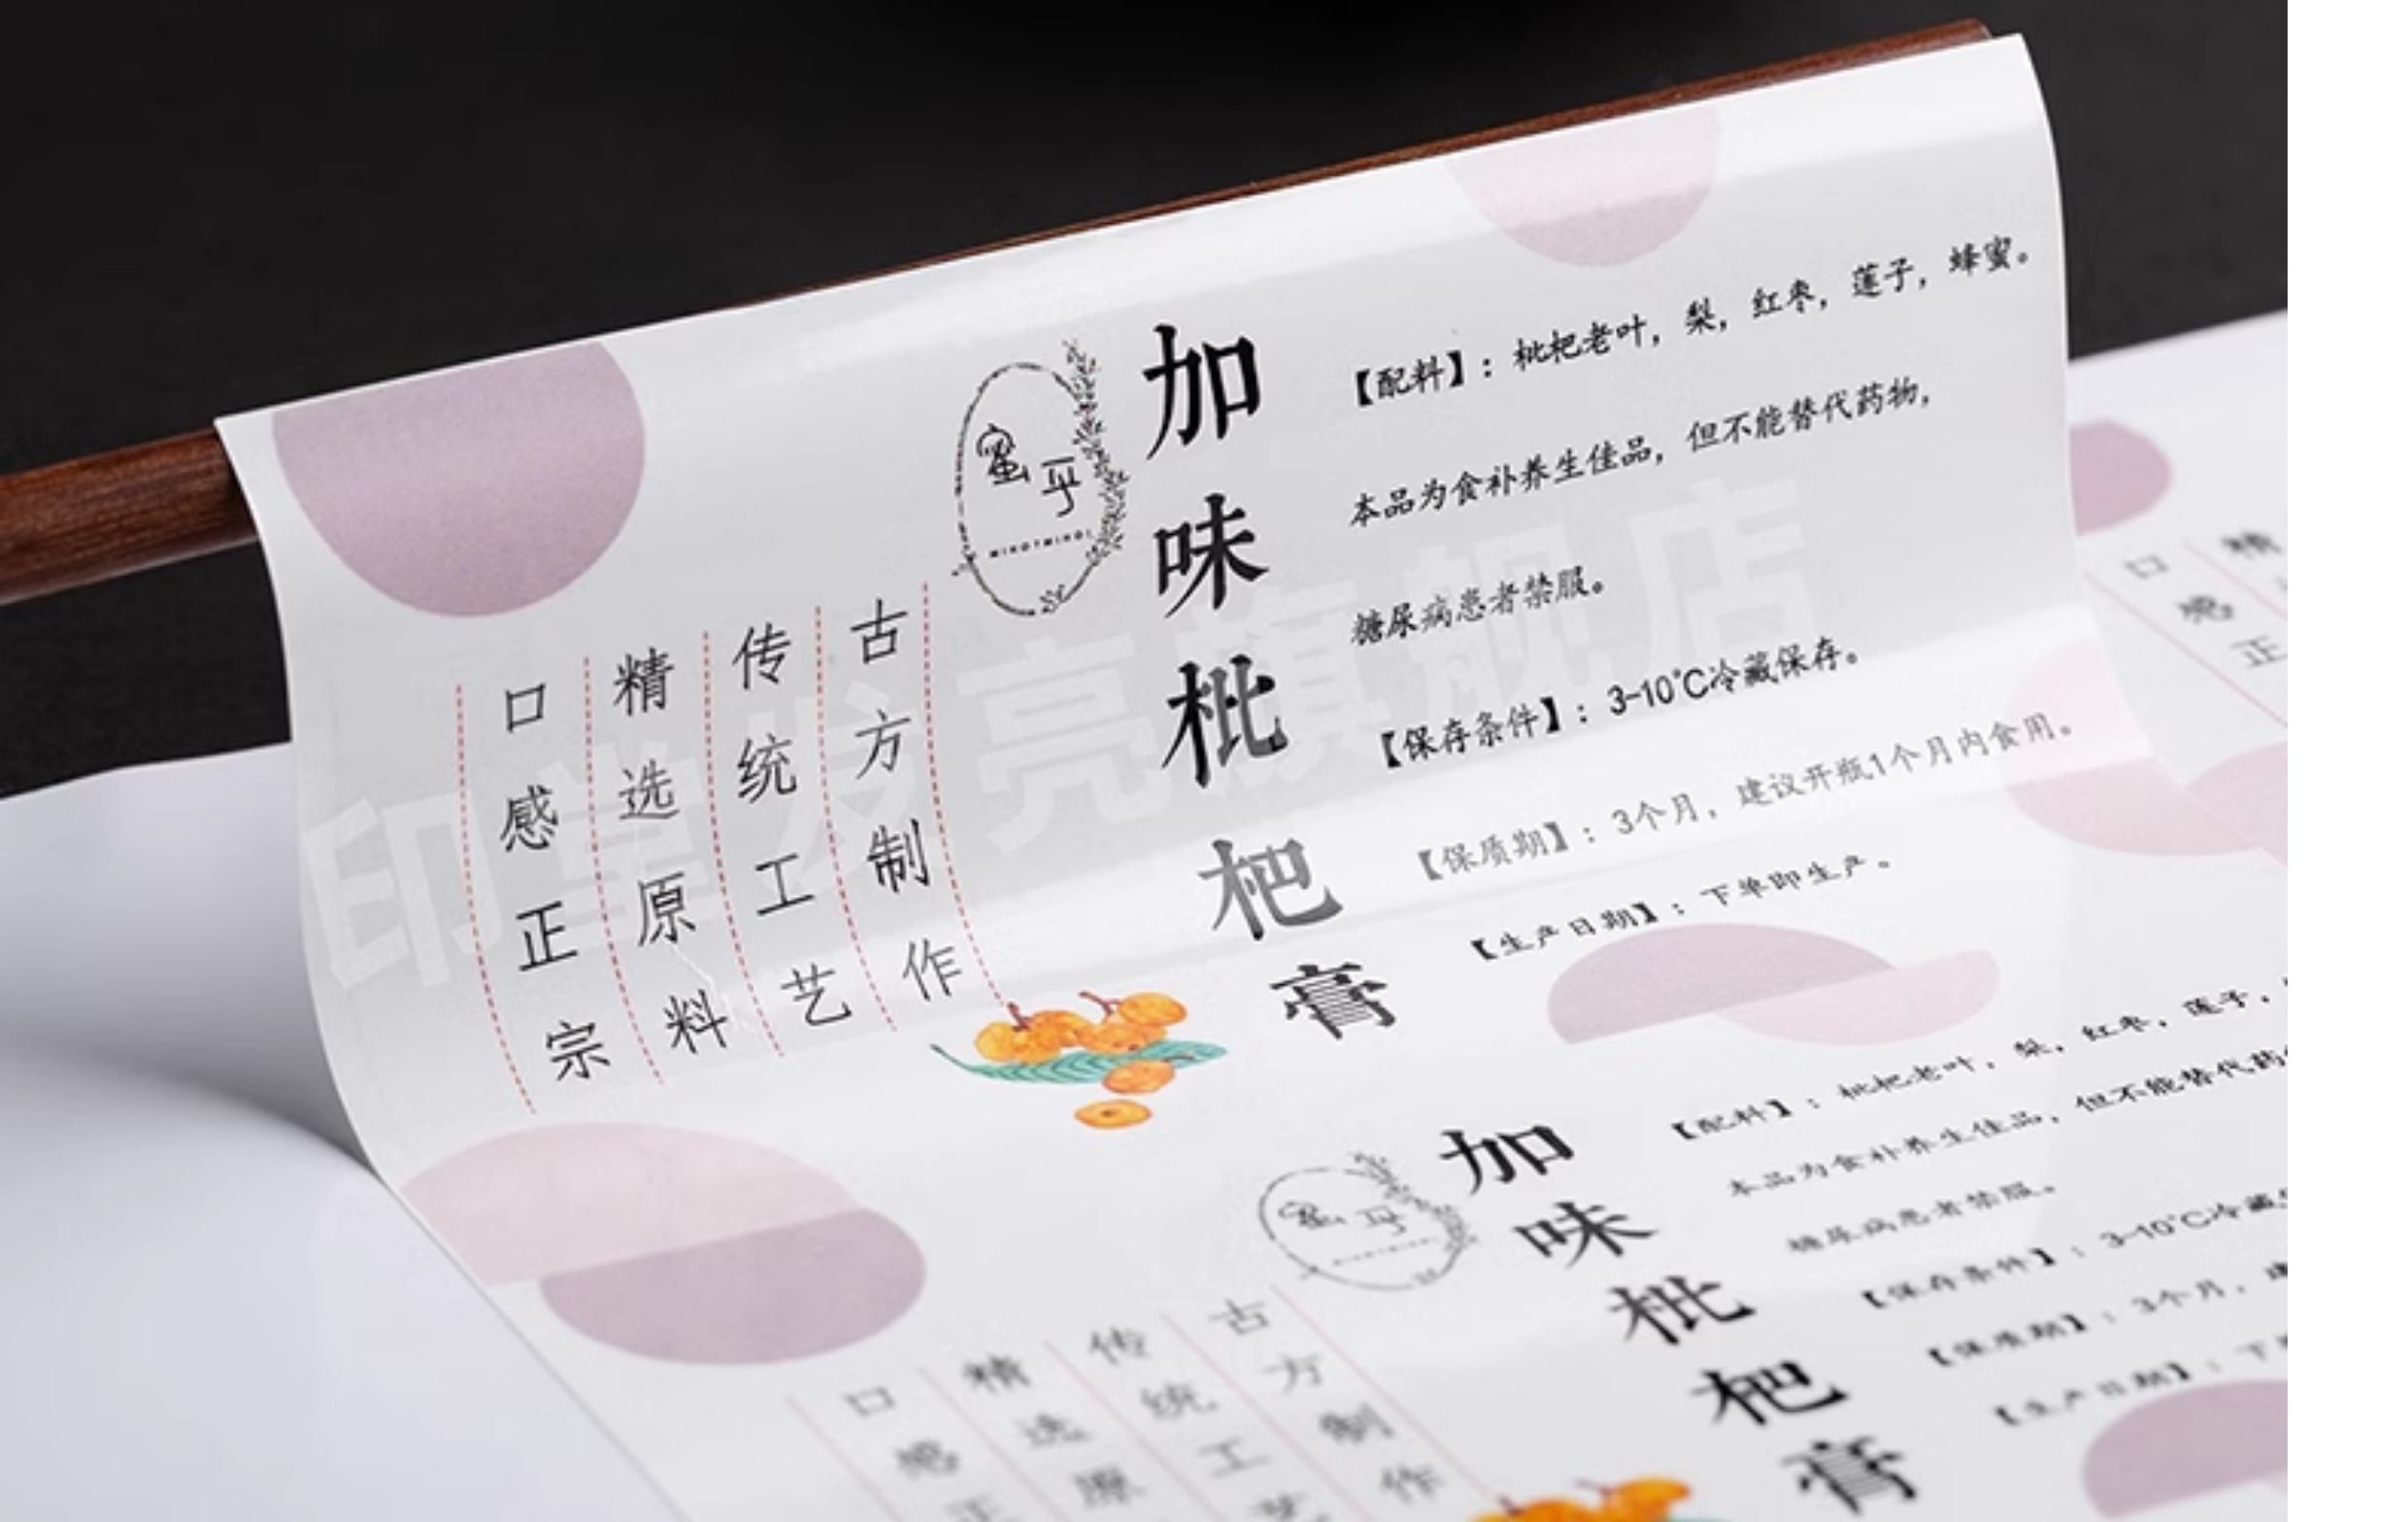 蜜乎
加味枇杷膏
古方制作
传统工艺
精选原料
口感正宗
【配料】：枇杷老叶，梨，红枣，莲子，蜂蜜。
本品为食补养生佳品，但不能替代药物，
糖尿病患者禁服。
【保存条件】：3-10℃冷藏保存。
【保质期】：3个月，建议开瓶1个月内食用。
【生产日期】：下单即生产。
印堂发亮旗舰店
口感正
精
蜜乎
加味枇杷膏
【配料】：枇杷老叶，梨，红枣，莲子，
本品为食补养生佳品，但不能替代药
糖尿病患者禁服。
【保存条件】：3-10℃冷藏
【保质期】：3个月，建
【生产日期】：下
古方制作
传统工艺
精选原
口感正